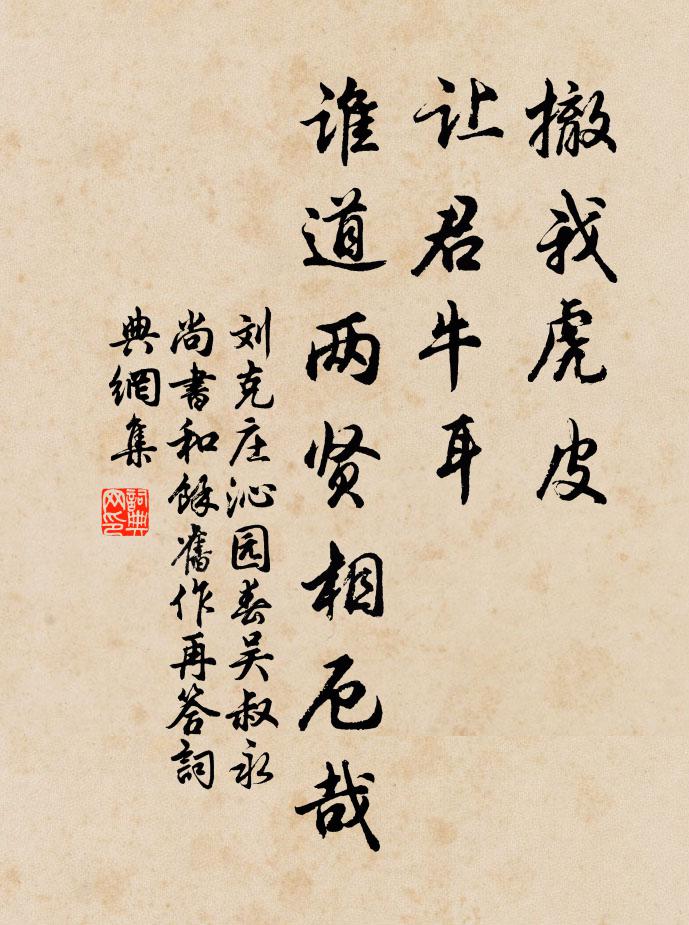 撤我虎皮
让君牛耳
谁道两贤相厄哉
刘克庄沁园春吴叔永
尚书和馀舊作再答詞
典網集
詞典网印